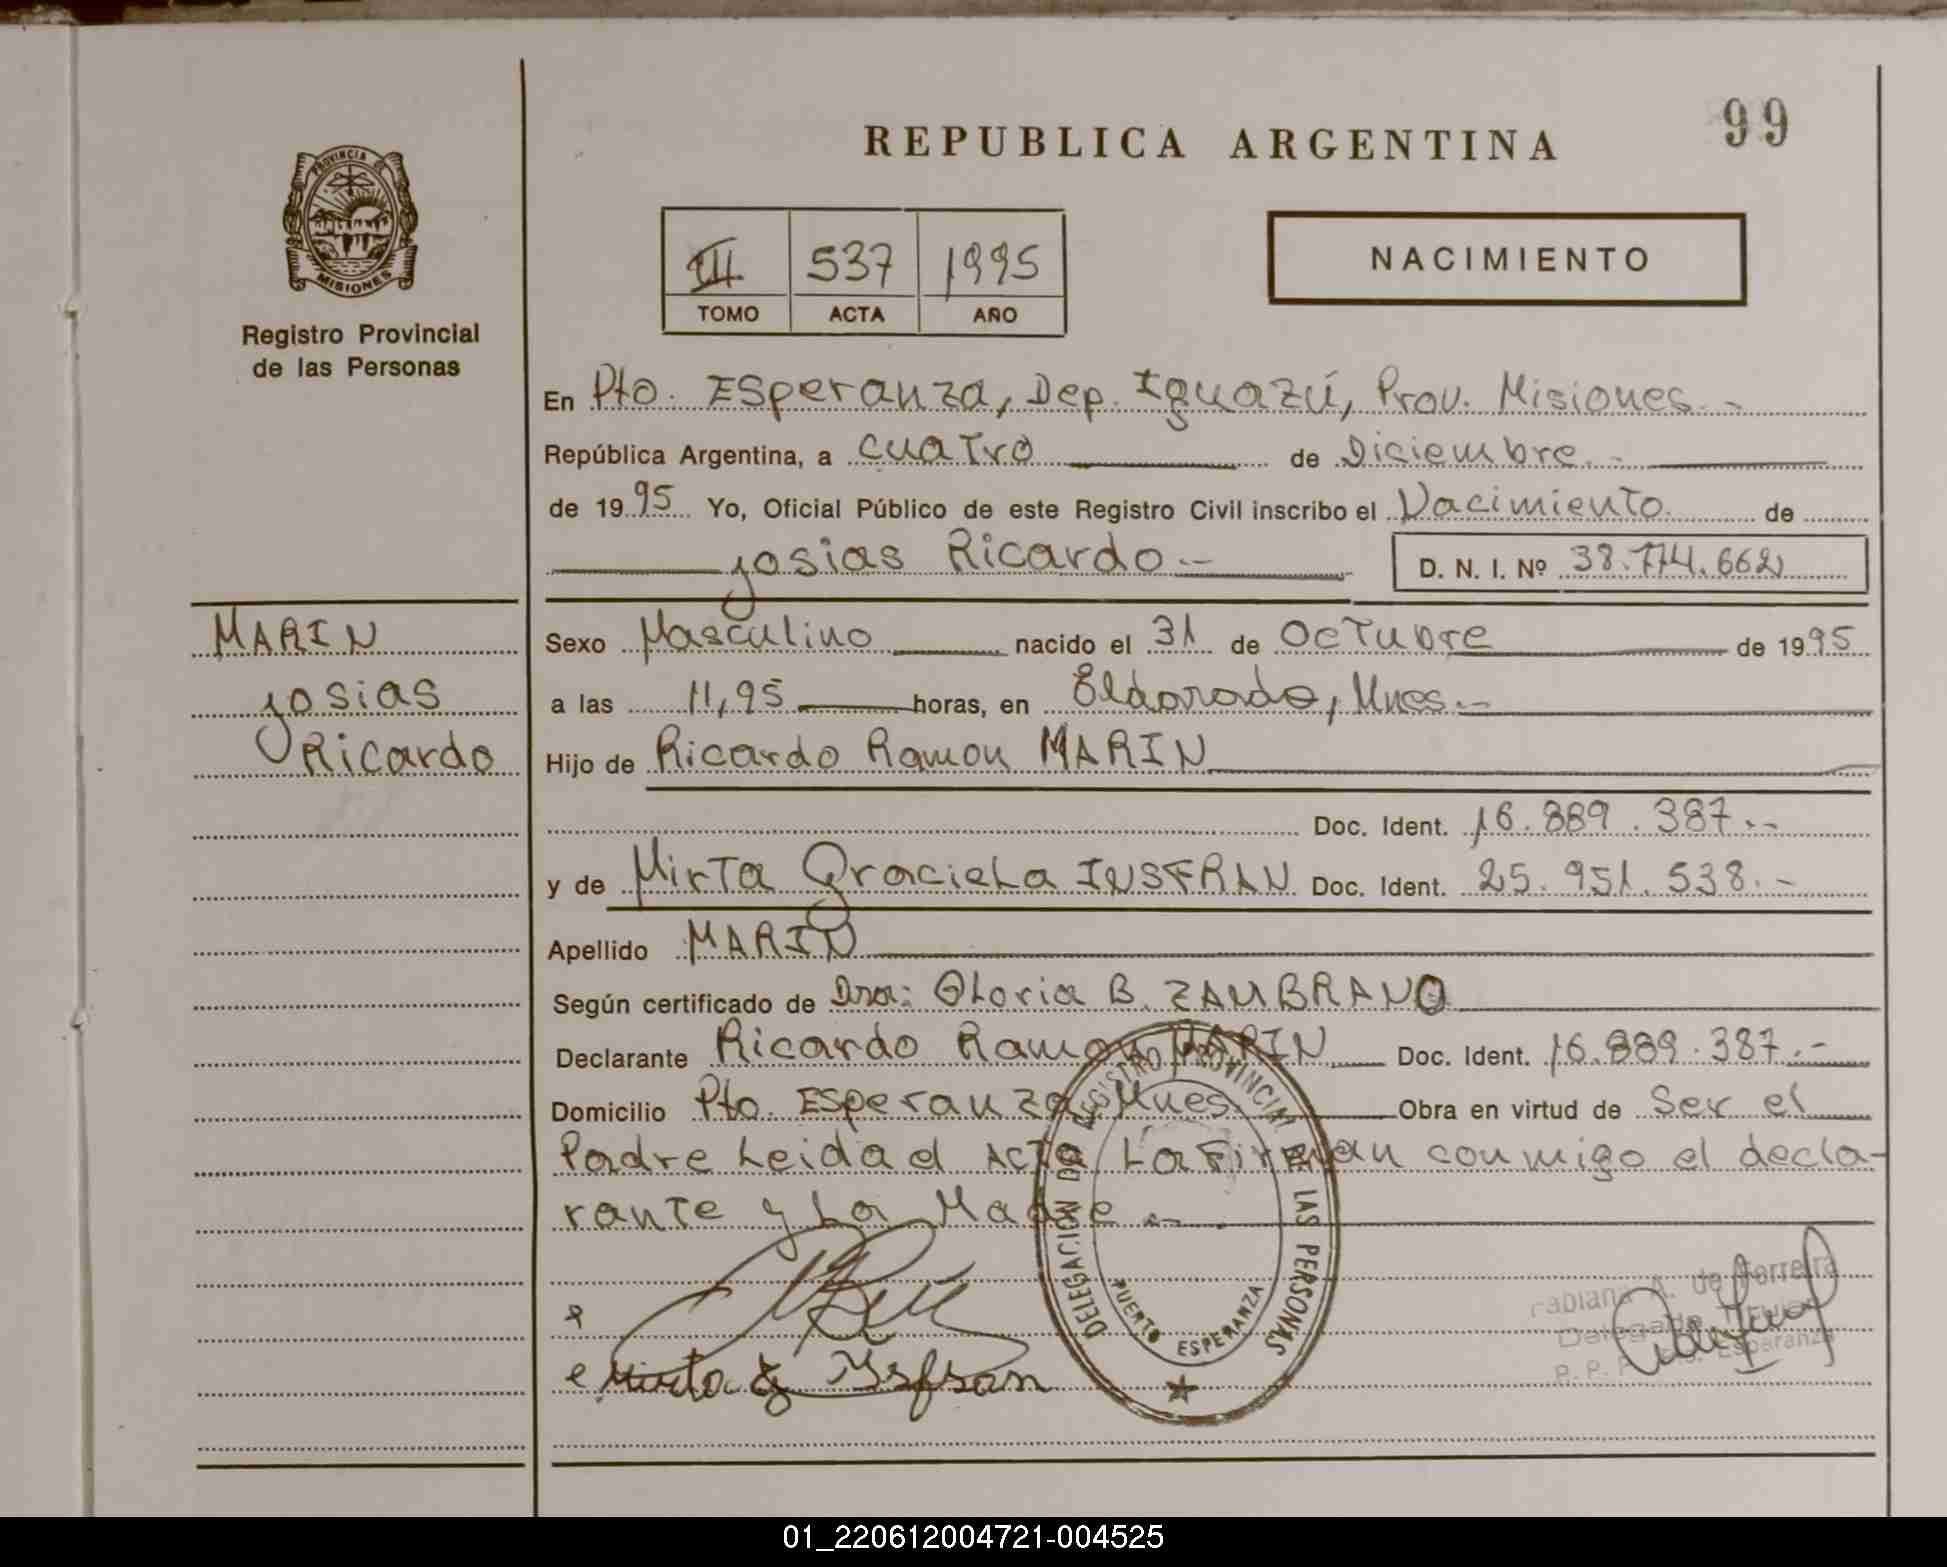 99
REPUBLICA ARGENTINA
PROVINCIA DE
MISIONES
Registro Provincial
de las Personas
III 537 1995
TOMO ACTA AÑO
NACIMIENTO
En Pto. Esperanza, Dep. Iguazú, Prov. Misiones.-
República Argentina, a cuatro de Diciembre.-
de 1995 Yo, Oficial Público de este Registro Civil inscribo el Nacimiento de
Josias Ricardo.-
D. N. I. Nº 38.774.662
MARIN
Josias
Ricardo
Sexo Masculino nacido el 31 de Octubre de 1995
a las 11,95 horas, en Eldorado, Mnes.-
Hijo de Ricardo Ramon MARIN
Doc. Ident. 16.889.387.--
y de Mirta Graciela INSFRAN Doc. Ident. 25.951.538.-
Apellido MARIN
Según certificado de Dra: Gloria B. ZAMBRANO
Declarante Ricardo Ramon MARIN Doc. Ident. 16.889.387.-
Domicilio Pto. Esperanza, Mnes. Obra en virtud de Ser el
Padre Leida el Acta La Firman conmigo el decla-
rante y La Madre.-
DELEGACION DEL REGISTRO PROVINCIAL DE LAS PERSONAS
PUERTO ESPERANZA
Fabiana A. de Ferreira
Delegada Titular
Esperanza
Mirta G Insfran
01_220612004721-004525